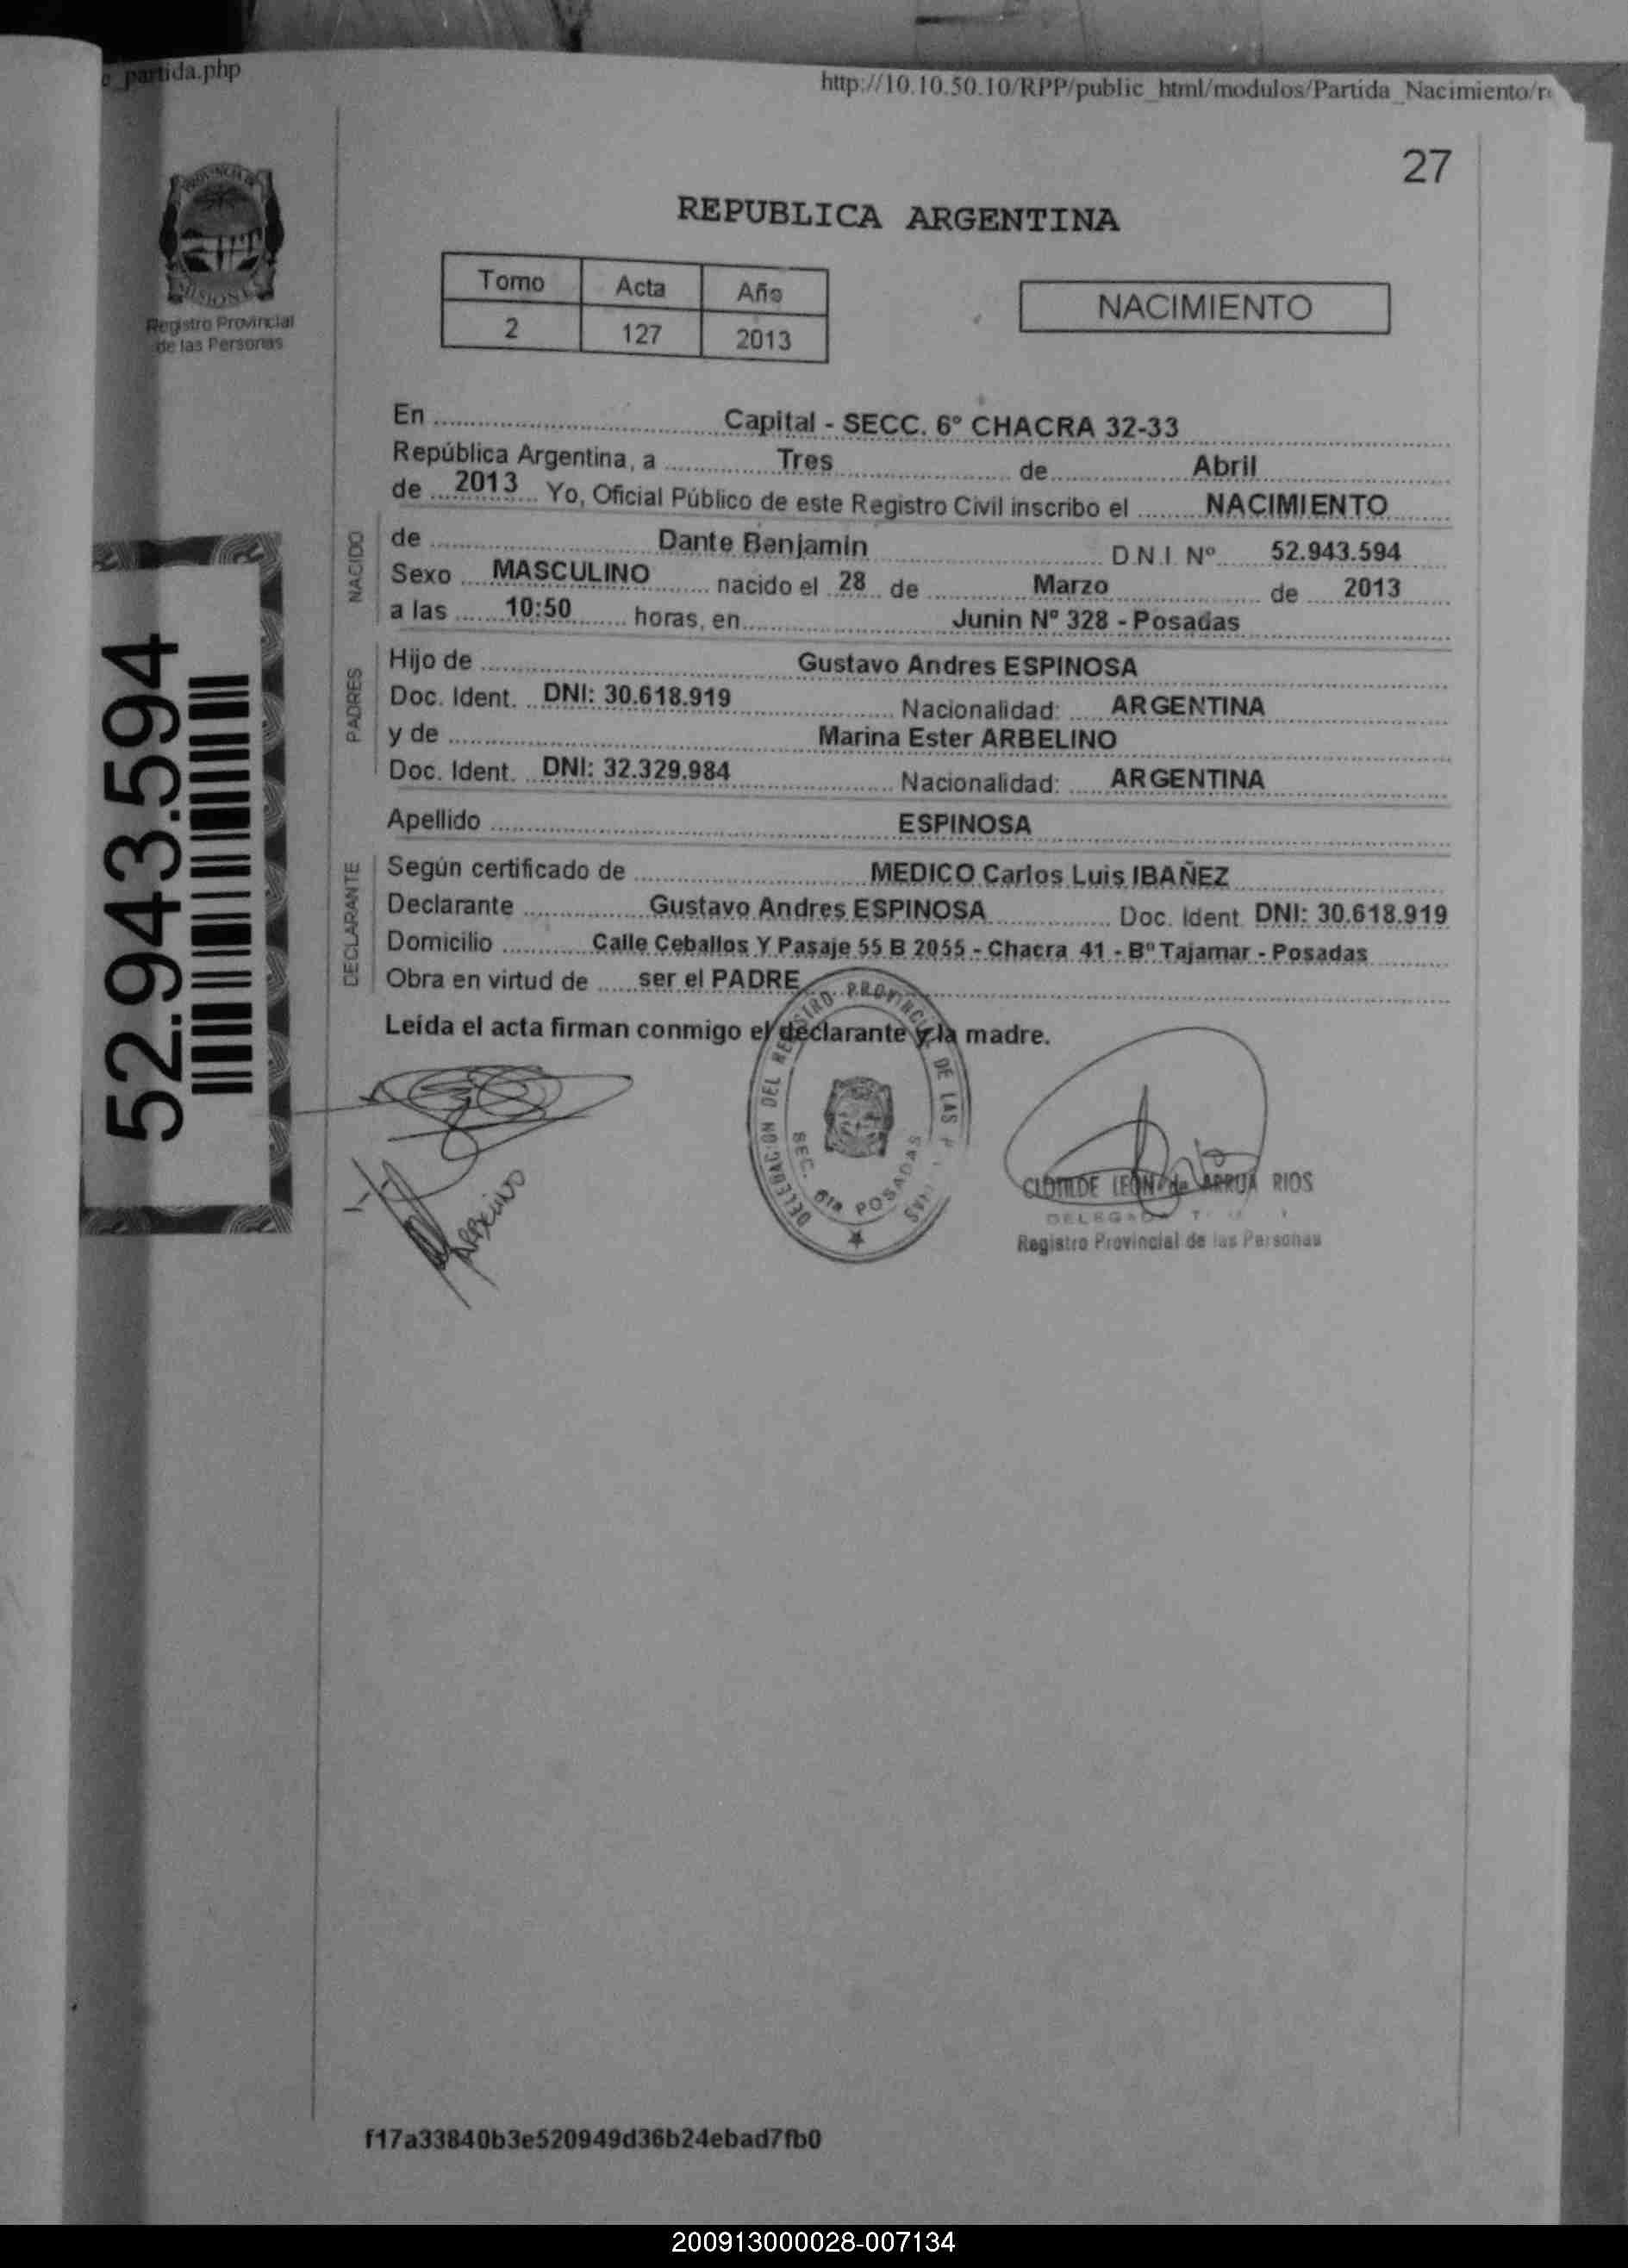 e_partida.php
http://10.10.50.10/RPP/public_html/modulos/Partida_Nacimiento/r
27
PROVINCIA DE
MISIONES
Registro Provincial
de las Personas
REPUBLICA ARGENTINA
Tomo Acta Año
2 127 2013
NACIMIENTO
En Capital - SECC. 6º CHACRA 32-33
República Argentina, a Tres de Abril
de 2013 Yo, Oficial Público de este Registro Civil inscribo el NACIMIENTO
NACIDO
de Dante Benjamin D.N.I. Nº 52.943.594
Sexo MASCULINO nacido el 28 de Marzo de 2013
a las 10:50 horas, en Junin Nº 328 - Posadas
PADRES
Hijo de Gustavo Andres ESPINOSA
Doc. Ident. DNI: 30.618.919 Nacionalidad: ARGENTINA
y de Marina Ester ARBELINO
Doc. Ident. DNI: 32.329.984 Nacionalidad: ARGENTINA
Apellido ESPINOSA
DECLARANTE
Según certificado de MEDICO Carlos Luis IBAÑEZ
Declarante Gustavo Andres ESPINOSA Doc. Ident. DNI: 30.618.919
Domicilio Calle Ceballos Y Pasaje 55 B 2055 - Chacra 41 - Bº Tajamar - Posadas
Obra en virtud de ser el PADRE
Leída el acta firman conmigo el declarante y la madre.
52.943.594
ARBELINO
DELEGACION DEL REGISTRO PROVINCIAL DE LAS
SEC. 6ta POSADAS
CLOTILDE LEON de ARRUA RIOS
DELEGADA
Registro Provincial de las Personas
f17a33840b3e520949d36b24ebad7fb0
200913000028-007134